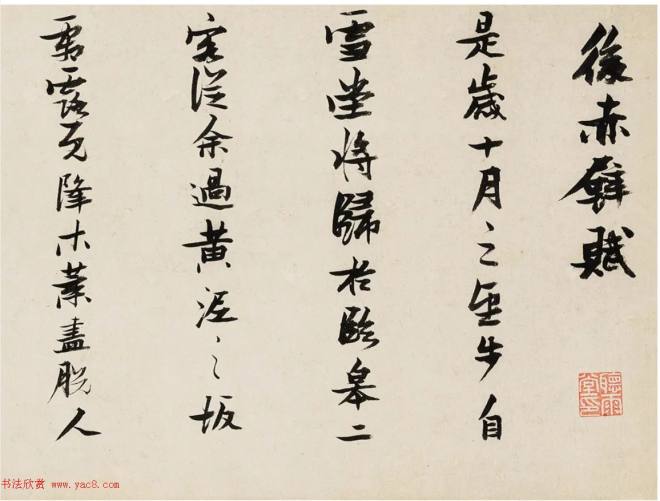 後赤壁賦
是歲十月之望步自
雪堂將歸於臨皋二
客從余過黃泥之坂
霜露既降木葉盡脫人
聽雨堂印
书法欣赏 www.yac8.com